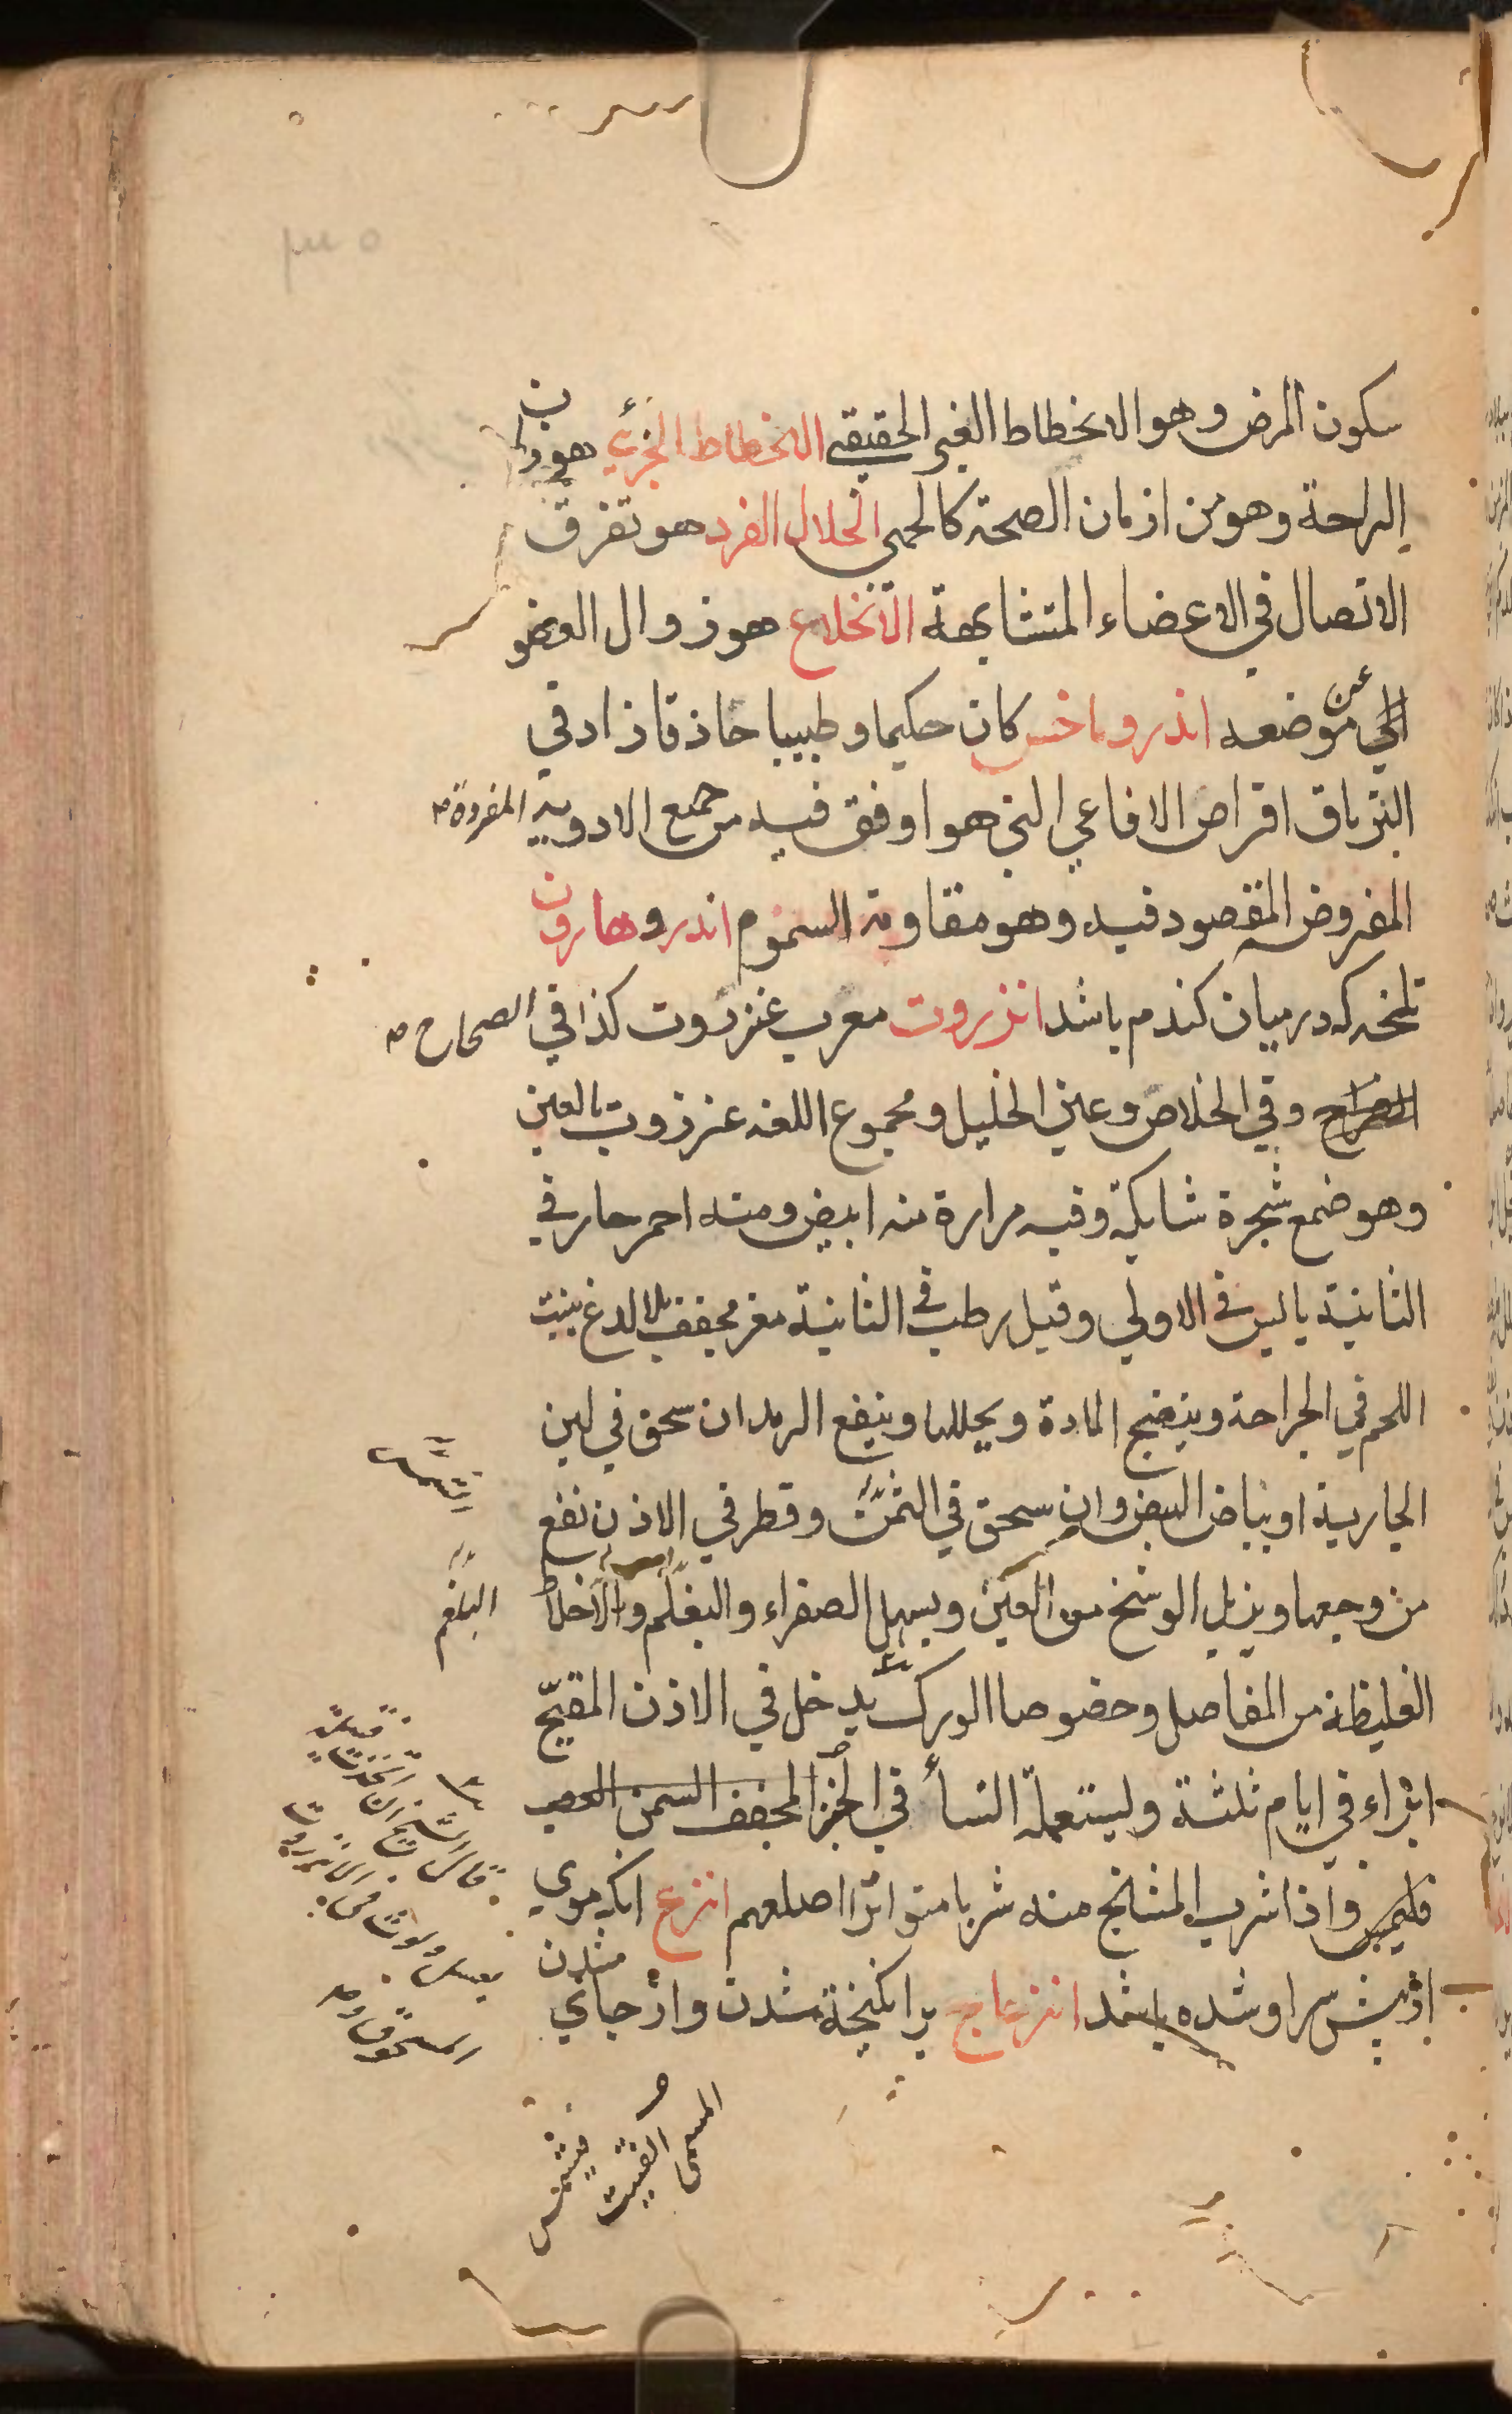 سكون المرض وهو الانحطاط الغير الحقيقي الانحطاط الجزئي هو دوان
الراحة وهو من ازمان الصحة كالحمى انحلال الفرد هو تفرق
الاتصال في الاعضاء المتشابهة الانخلاع هو زوال العضو
عن موضعه اندروماخس كان حكيما و طبيبا حاذقا زاد في
الترياق اقراص الافاعي التي هو اوفق فيه من جميع الادوية المفردة
المفروض المقصود فيه وهو مقاومة السموم اندروهارون
تلخه كه درميان كندم باشد انزروت معرب عنزروت كذا في الصحاح
الصراح وفي الخلاص وعين الخليل ومجموع اللغه عنزروت بالعين
وهو ضمع شجرة شايكة وفيه مرارة منه ابيض ومنه احمر حار في
الثانية يابس في الاولى وقيل رطب في الثانية مغر مجفف بلا لدغ ينبت
اللحم في الجراحة وينضج المادة ويحللها وينفع الرمد ان سحق في لبن
الجارية او بياض البيض وان سحق في الثمن وقطر في الاذن نفع
من وجعها ويزيل الوسخ من العين ويسهل الصفراء والبغلم والاخلاط
الغليظة من المفاصل وخضوصا الورك يدخل في الاذن المقيح
ابراء في ايام ثلثة وليستعمله النسأ في الخبز المجفف السمن
واذا شرب المشائخ منه شربا متواترا اصلعهم انزع انكه موي
ازپيش سر او شده باشد انزعاج برانكيخته شدن وازجاي
شدن
البلغم
قال الشيخ ان اتخذت فتيلة
بعسل ولوثت في الانزروت
المسحوق